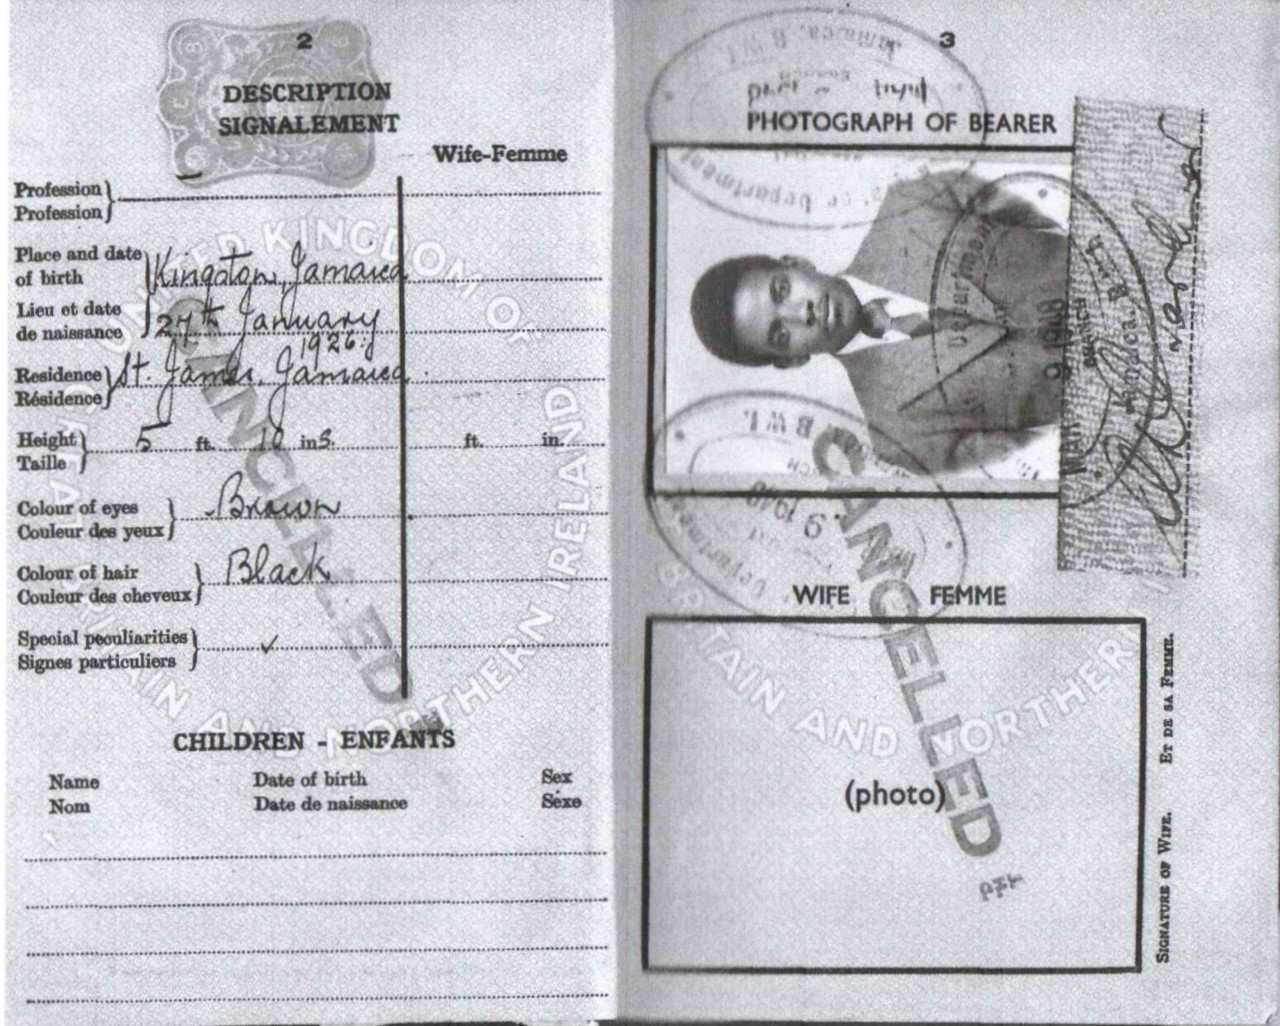 2
DESCRIPTION
SIGNALEMENT
Wife-Femme
Profession
Profession
Place and date
of birth
Kingston, Jamaica
Lieu et date
de naissance
27th January
1926.
Residence
Résidence
St. James, Jamaica
Height
Taille
5 ft. 10 ins.
ft. in.
Colour of eyes
Couleur des yeux
Brown
Colour of hair
Couleur des cheveux
Black
Special peculiarities
Signes particuliers
CANCELLED
CHILDREN - ENFANTS
Name Date of birth Sex
Nom Date de naissance Sexe
3
Jamaica, B.W.I.
PHOTOGRAPH OF BEARER
Department
9 1948
CANCELLED
WIFE FEMME
(photo)
SIGNATURE OF WIFE. ET DE SA FEMME.
UNITED KINGDOM OF
BRITAIN AND NORTHERN IRELAND
BRITAIN AND NORTHERN